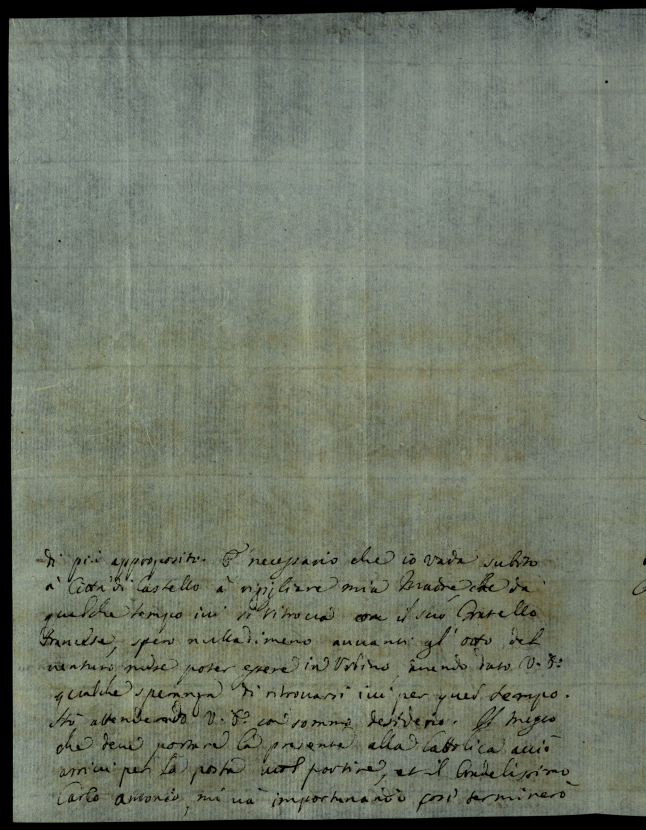 di più approposito. È necessario che io vada subito
a Città di Castello à ripigliare mia Madre che da
qualche tempo ivi si ritrova con il suo Fratello
Francese, spero nulladimeno avvanti gl' otto del
venturo mese poter essere in Urbino, avendo dato V. S.ª
qualche speranza di ritrovarsi ivi per quel tempo.
Stò attendendo V. S.ª con sommo desiderio. Il
che deve portare la presente alla Cattolica acciò
arrivi per la posta vuol partire, et il Crudelissimo
Carlo Antonio, mi và importunando così terminerò